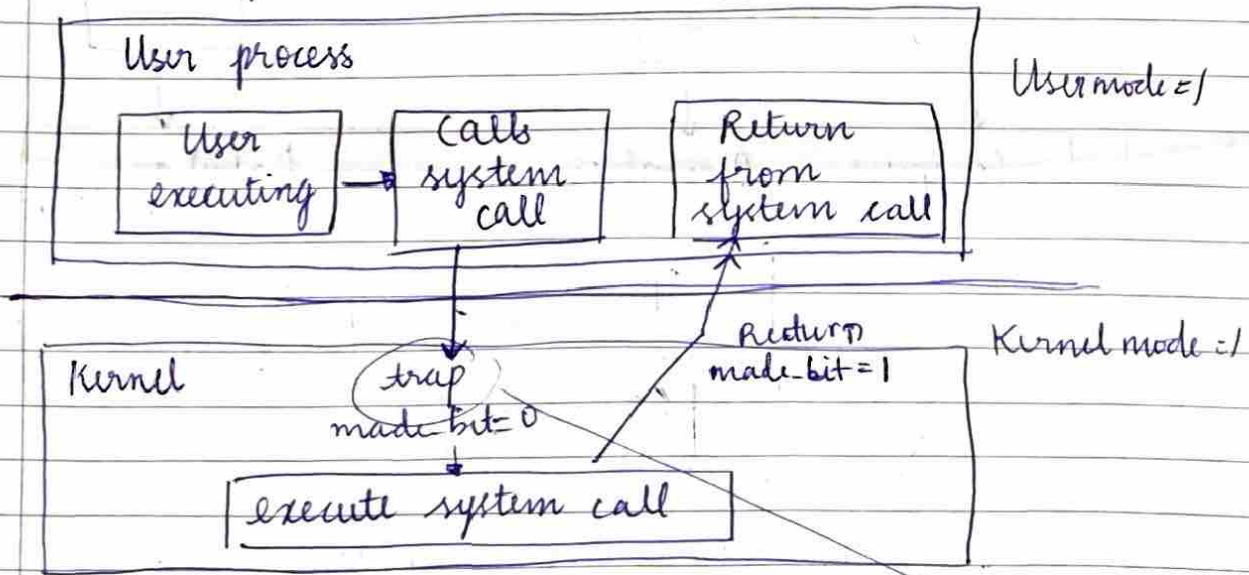 User process
User mode = 1
User
executing
Calls
system
call
Return
from
system call
Kernel
trap
made_bit = 0
Reeturn
made_bit = 1
Kernel mode = 1
execute system call